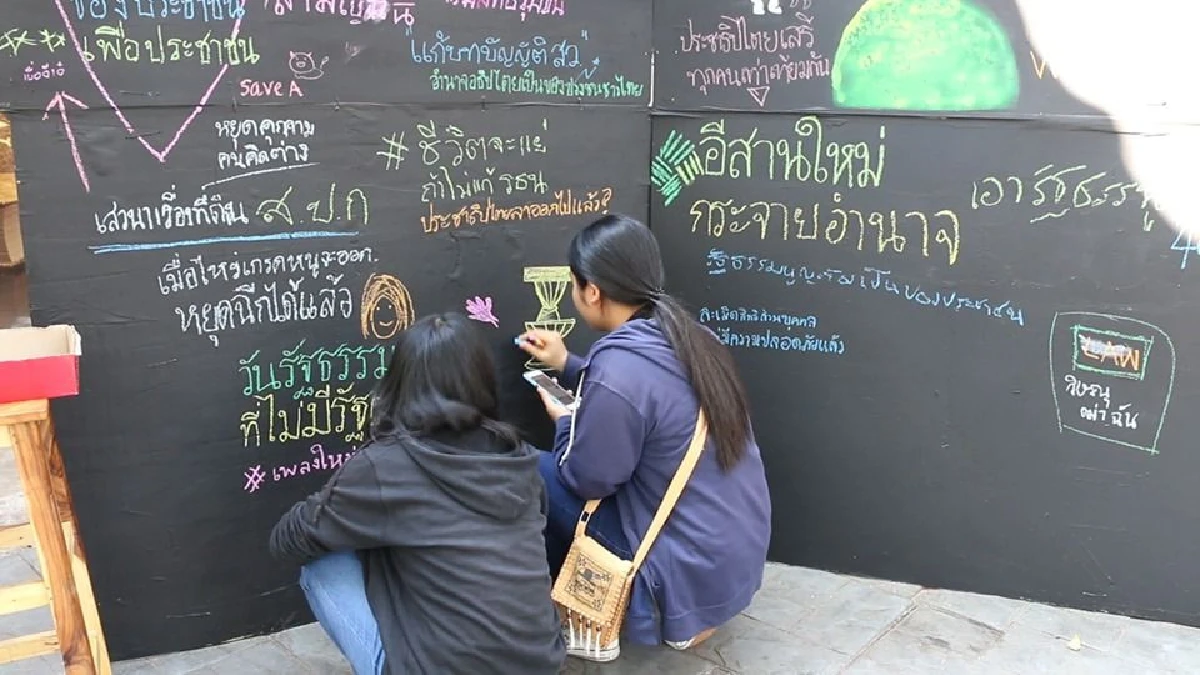 ของประชาชน
เพื่อประชาชน
save A
อำนาจอธิปไตยเป็นของปวงชนชาวไทย
ประชาธิปไตยเสรี
ทุกคนเท่าเทียมกัน
หยุดคุกคาม
คนคิดต่าง
# ชีวิตจะแย่
ถ้าไม่แก้ รธน
ประชาธิปไตยลาออกไปแล้ว?
เสวนาเรื่องที่ดิน ส.ป.ก
เมื่อไหร่เกรดหนูจะออก.
หยุดฉีกได้แล้ว
วันรัฐธรรม
ที่ไม่มีรัฐ
# เพลงใหม่
อีสานใหม่
กระจายอำนาจ
รัฐธรรมนูญต้องเป็นของประชาชน
ละเมิดสิทธิส่วนบุคคล
เอารัฐธรรมนู
LAW